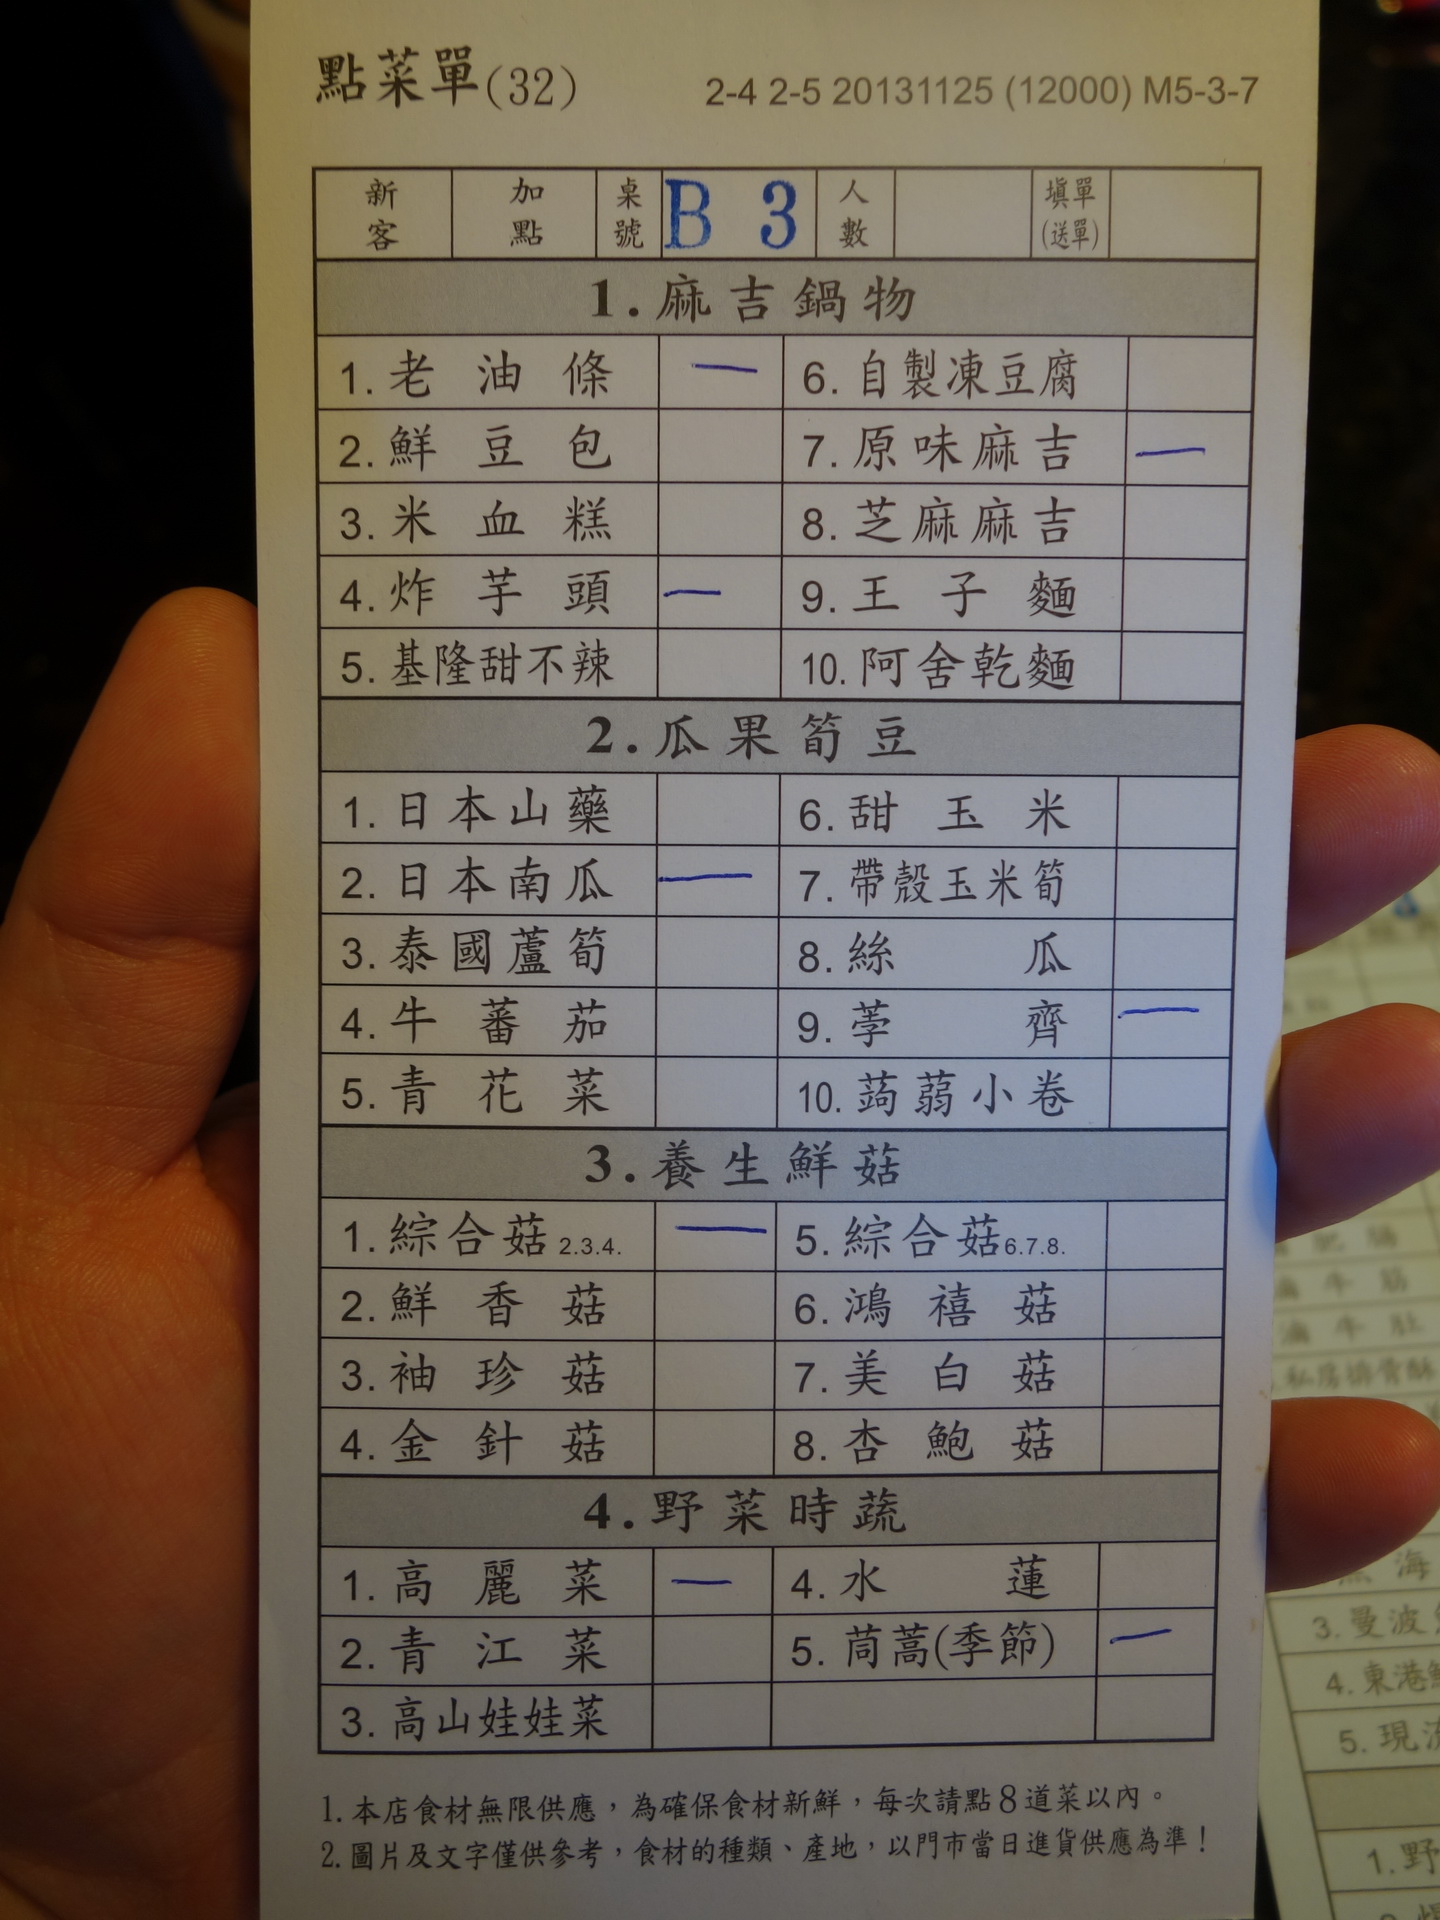 點菜單(32) 2-4 2-5 20131125 (12000) M5-3-7
新客 加點 桌號 B 3 人數 填單(送單)
1.麻吉鍋物
1.老油條 一 6.自製凍豆腐
2.鮮豆包 7.原味麻吉 一
3.米血糕 8.芝麻麻吉
4.炸芋頭 一 9.王子麵
5.基隆甜不辣 10.阿舍乾麵
2.瓜果筍豆
1.日本山藥 6.甜玉米
2.日本南瓜 一 7.帶殼玉米筍
3.泰國蘆筍 8.絲瓜
4.牛蕃茄 9.荸齊 一
5.青花菜 10.蒟蒻小卷
3.養生鮮菇
1.綜合菇2.3.4. 一 5.綜合菇6.7.8.
2.鮮香菇 6.鴻禧菇
3.袖珍菇 7.美白菇
4.金針菇 8.杏鮑菇
4.野菜時蔬
1.高麗菜 一 4.水蓮
2.青江菜 5.茼蒿(季節) 一
3.高山娃娃菜
1.本店食材無限供應，為確保食材新鮮，每次請點8道菜以內。
2.圖片及文字僅供參考，食材的種類、產地，以門市當日進貨供應為準！
滷牛筋
滷牛肚
私房排骨酥
海
3.曼波
4.東港
5.現
1.野